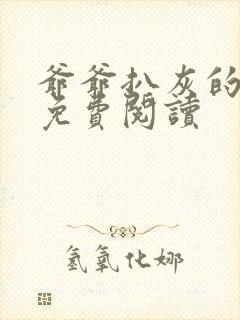 爺爺扒灰的
免費閱讀
氢氧化娜